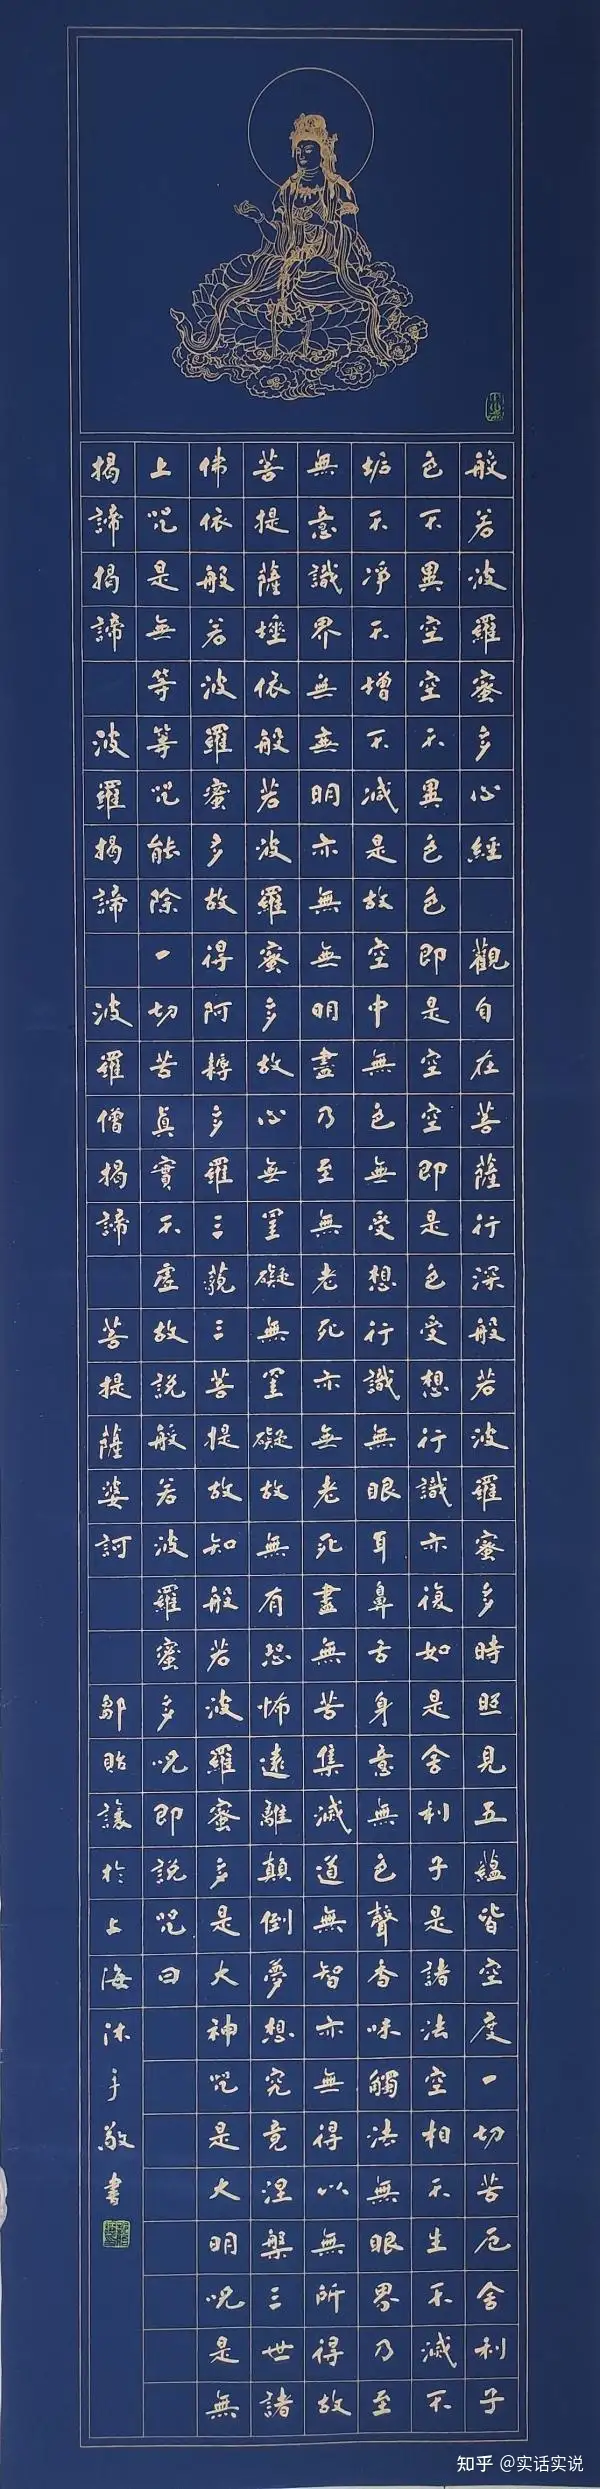 般若波羅蜜多心經 觀自在菩薩行深般若波羅蜜多時照見五蘊皆空度一切苦厄舍利子
色不異空空不異色色即是空空即是色受想行識亦復如是舍利子是諸法空相不生不滅不
垢不淨不增不減是故空中無色無受想行識無眼耳鼻舌身意無色聲香味觸法無眼界乃至
無意識界無無明亦無無明盡乃至無老死亦無老死盡無苦集滅道無智亦無得以無所得故
菩提薩埵依般若波羅蜜多故心無罣礙無罣礙故無有恐怖遠離顛倒夢想究竟涅槃三世諸
佛依般若波羅蜜多故得阿耨多羅三藐三菩提故知般若波羅蜜多是大神咒是大明咒是無
上咒是無等等咒能除一切苦真實不虛故說般若波羅蜜多咒即說咒曰
揭諦揭諦 波羅揭諦 波羅僧揭諦 菩提薩婆訶 鄒貽讓於上海沐手敬書
知乎 @实话实说